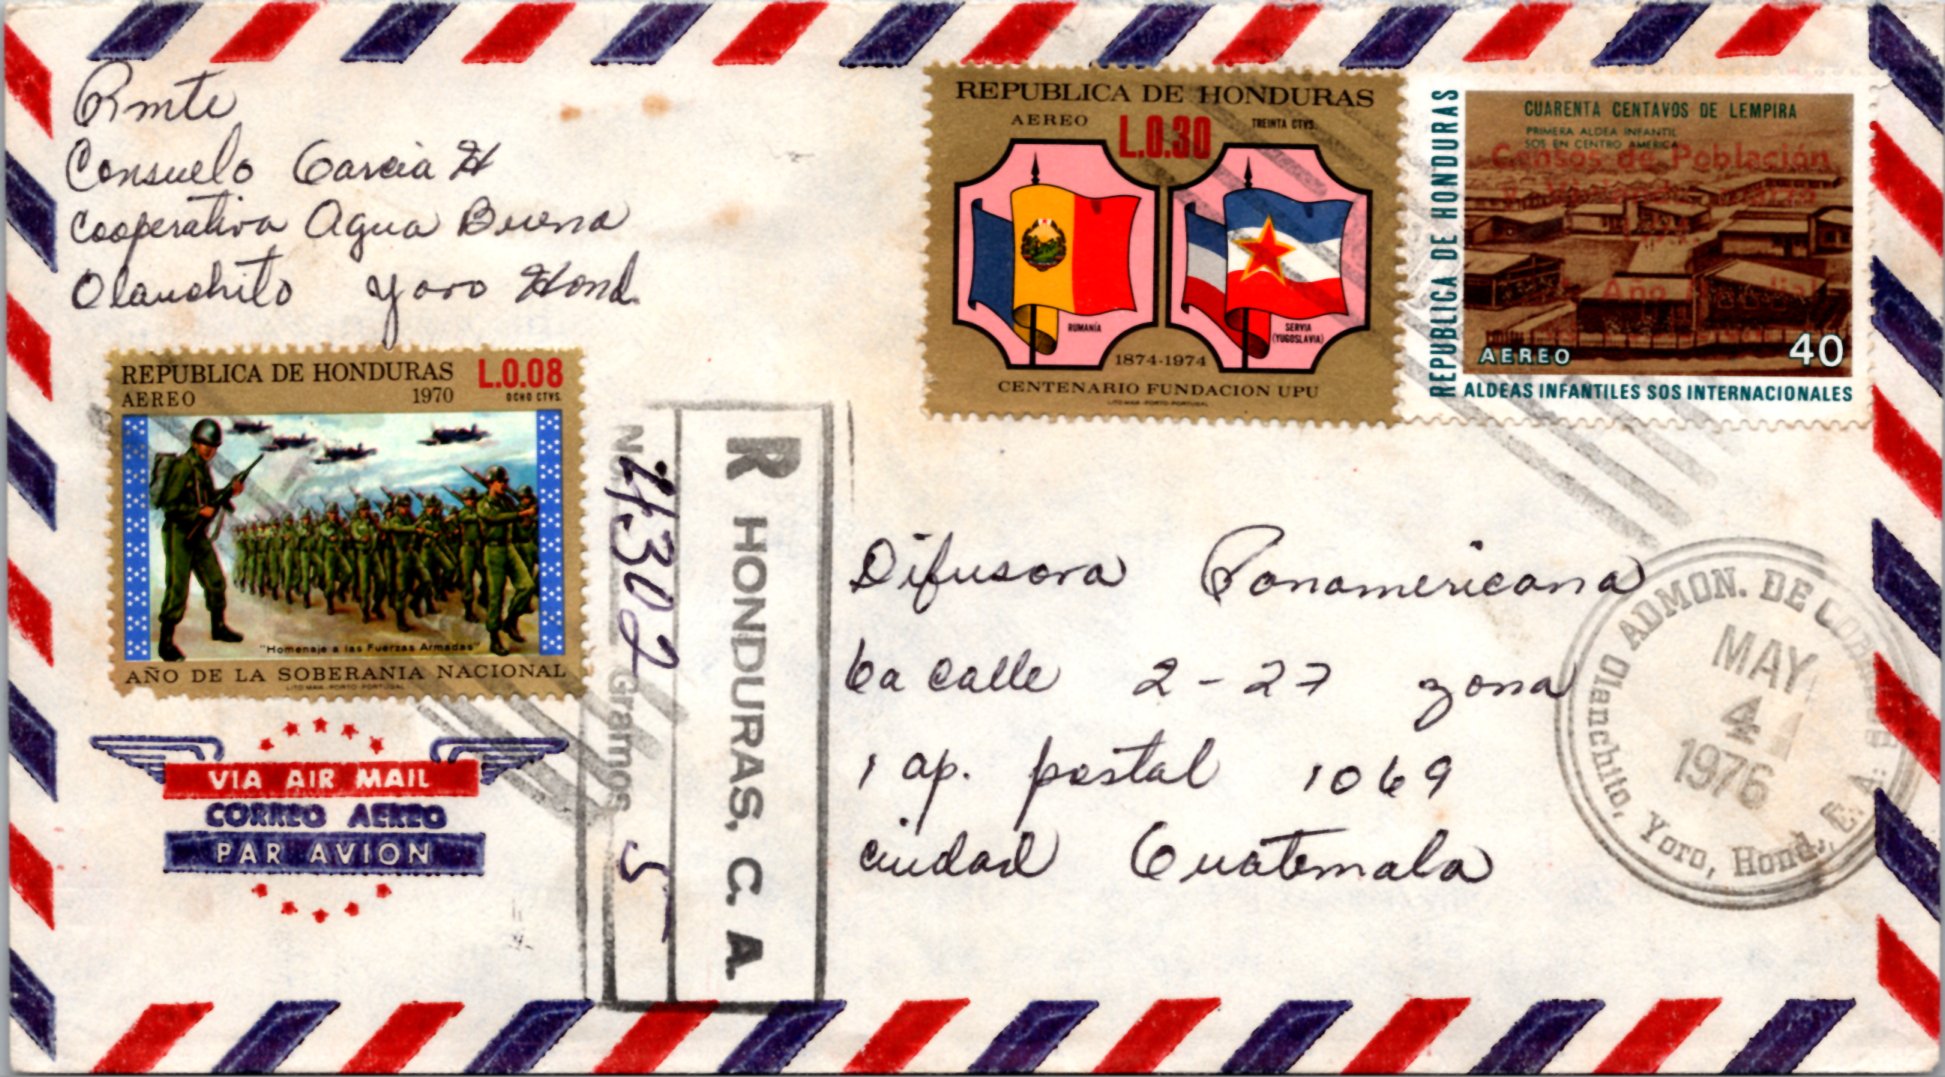 Rmte
Consuelo Garcia H
Cooperativa Agua Buena
Olanchito Yoro Hond.
REPUBLICA DE HONDURAS
AEREO
TREINTA CTVS.
L.0.30
RUMANÍA
SERVIA
(YUGOSLAVIA)
1874-1974
CENTENARIO FUNDACION UPU
LITO MAIA-PORTO-PORTUGAL
REPUBLICA DE HONDURAS
CUARENTA CENTAVOS DE LEMPIRA
PRIMERA ALDEA INFANTIL
SOS EN CENTRO AMERICA
Censos de Población
Año
AEREO
40
ALDEAS INFANTILES SOS INTERNACIONALES
REPUBLICA DE HONDURAS
AEREO
1970
L.0.08
OCHO CTVS.
"Homenaje a las Fuerzas Armadas"
AÑO DE LA SOBERANIA NACIONAL
LITO MAIA-PORTO-PORTUGAL
VIA AIR MAIL
CORREO AEREO
PAR AVION
R HONDURAS, C. A.
4302
Gramos 5
Difusora Panamericana
6a calle 2-27 zona
1 ap. postal 1069
ciudad Guatemala
ADMON. DE
MAY
4
1976
Olanchito, Yoro, Hond.